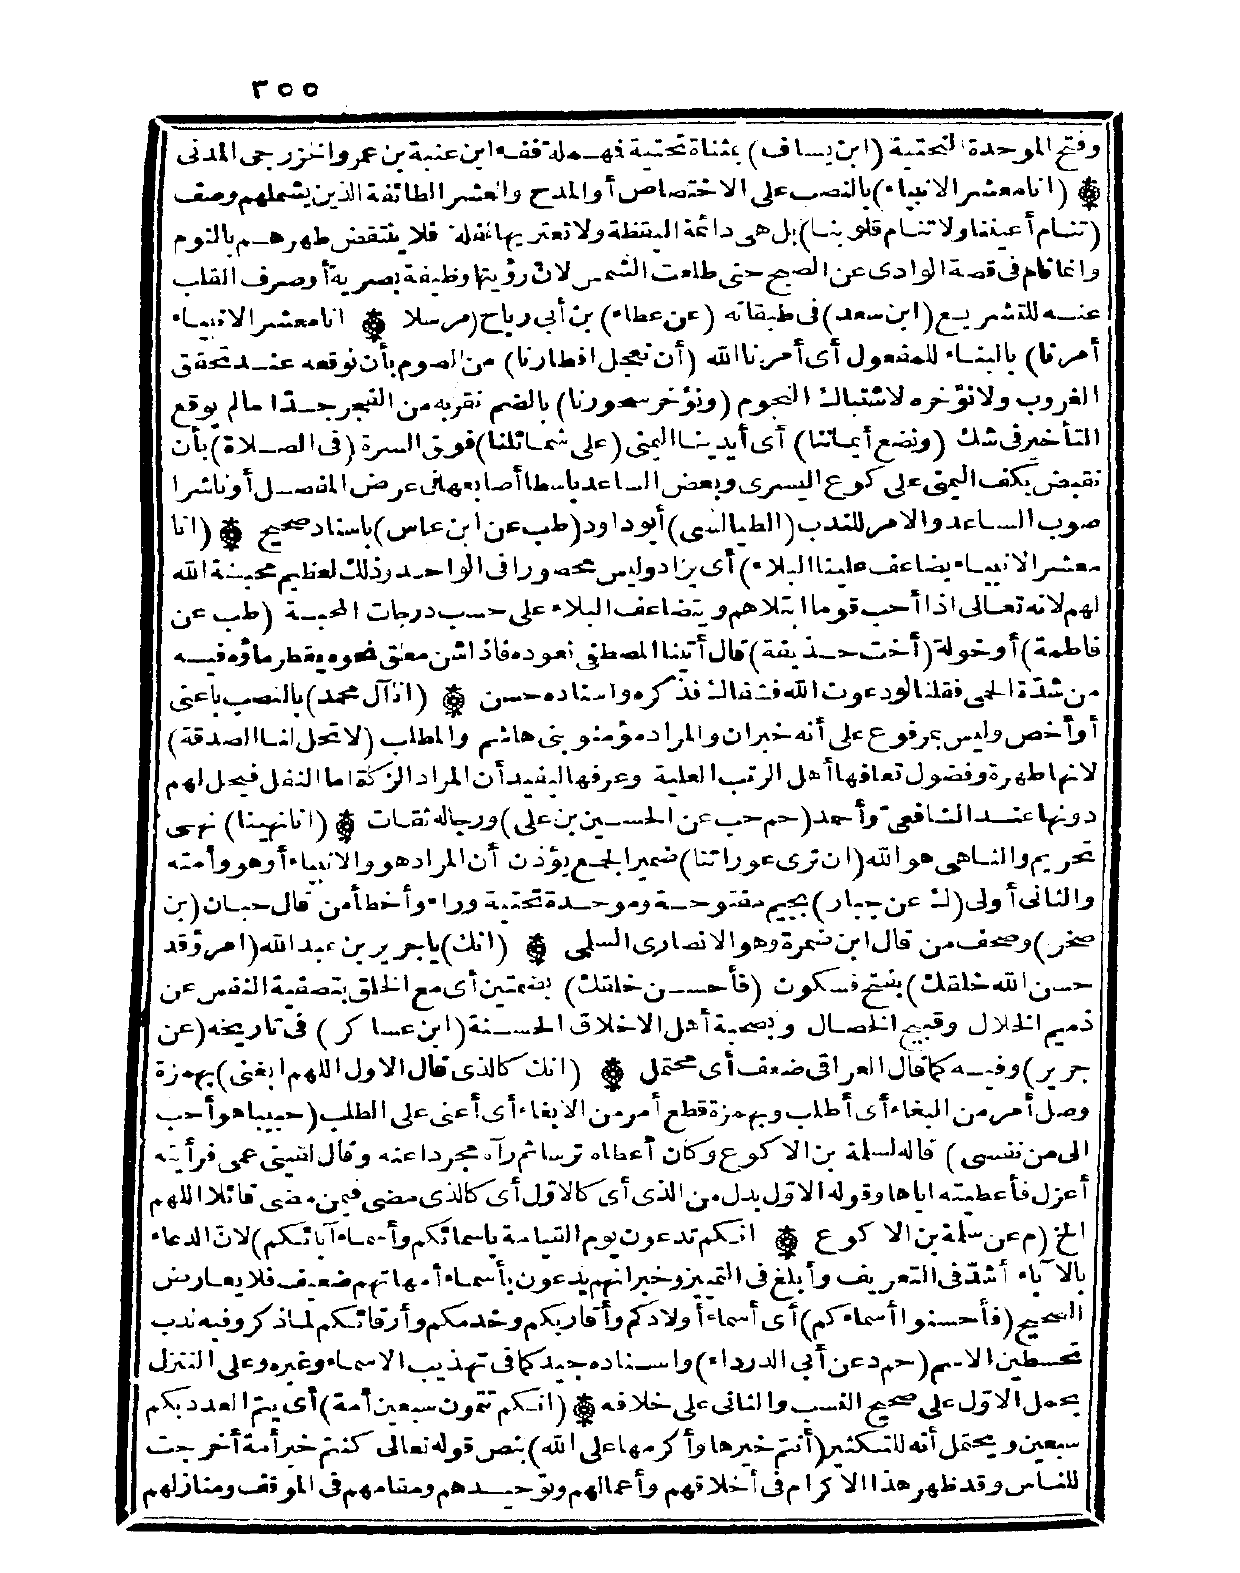 ٣٥٥
وفتح الموحدة التحتية (ابن يساف) بمثناة تحتية فهملة ففاء ابن عنبة بن عمرو الخزرجى المدنى
❁ (انا معشر الانبياء) بالنصب على الاختصاص أو المدح والعشر الطائفة الذين يشملهم وصف
(تنام أعيننا ولا تنام قلوبنا) بل هى دائمة اليقظة ولا تعتريها غفلة فلا ينتقض طهرهم بالنوم
وانما نام فى قصة الوادى عن الصبح حتى طلعت الشمس لان رؤيتها وظيفة بصرية أو صرف القلب
عنه للتشريع (ابن سعد) فى طبقاته (عن عطاء) بن أبى رباح (مرسلا ❁ انا معشر الانبياء
أمرنا) بالبناء للمفعول أى أمرنا الله (أن نعجل افطارنا) من الصوم بأن نوقعه عند تحقق
الغروب ولا نؤخره لاشتباك النجوم (ونؤخر سحورنا) بالضم نقربه من الفجر جدّا مالم يوقع
التأخير فى شك (ونضع أيماننا) أى أيدينا اليمنى (على شمائلنا) فوق السرة (فى الصلاة) بأن
نقبض بكف اليمنى على كوع اليسرى وبعض الساعد باسطا أصابعها فى عرض المفصل أو ناشرا
صوب الساعد والامر للندب (الطيالسى) أبو داود (طب عن ابن عاس) باسناد صحيح ❁ (انا
معشر الانبياء يضاعف علينا البلاء) أى يزاد وليس محصورا فى الواحد وذلك لعظيم محبة الله
لهم لانه تعالى اذا أحب قوما ابتلاهم ويتضاعف البلاء على حسب درجات المحبة (طب عن
فاطمة) أو خولة (أخت حذيفة) قال أتينا المصطفى نعوده فاذا شن معلق نحوه يقطر ماؤه فيه
من شدّة الحمى فقلنا لو دعوت الله فشفاك فذكره واسناده حسن ❁ (انا آل محمد) بالنصب باعنى
أو أخص وليس بمرفوع على أنه خبران والمراد مؤمنو بنى هاشم والمطلب (لا تحل لنا الصدقة)
لانها طهرة وفضول تعافها أهل الرتب العلية وعرفها ليفيد أن المراد الزكاة اما النفل فيحل لهم
دونها عند الشافعى وأحمد (حم حب عن الحسين بن على) ورجاله ثقات ❁ (انا نهينا) نهى
تحريم والناهى هو الله (ان ترى عوراتنا) ضمير الجمع يؤذن أن المراد هو والانبياء أو هو وأمته
والثانى أولى (ك عن جبار) بجيم مفتوحة وموحدة تحتية وراء وأخطأ من قال حبان (بن
صخر) وصحف من قال ابن ضمرة وهو الانصارى السلمى ❁ (انك) يا جرير بن عبد الله (امرؤ قد
حسن الله خلقك) بفتح فسكون (فأحسن خلقك) بضمتين أى مع الخلق بتصفية النفس عن
ذميم الخلال وقبيح الخصال وبصحبة أهل الاخلاق الحسنة (ابن عساكر) فى تاريخه (عن
جرير) وفيه كما قال العراقى ضعف أى محتمل ❁ (انك كالذى قال الاول اللهم ابغنى) بهمزة
وصل أمر من البغاء أى أطلب وبهمزة قطع أمر من الابغاء أى أعنى على الطلب (حبيبا هو أحب
الى من نفسى) قاله لسلمة بن الاكوع وكان أعطاه ترسا ثم رآه مجردا عنه وقال لقينى عمى فرأيته
أعزل فأعطيته اياها وقوله الاول بدل من الذى أى كالاوّل أى كالذى مضى فيمن مضى قائلا اللهم
الخ (م عن سلمة بن الاكوع ❁ انكم تدعون يوم القيامة بأسمائكم وأسماء آبائكم) لانّ الدعاء
بالآباء أشدّ فى التعريف وأبلغ فى التمييز وخبر انهم يدعون بأسماء أمهاتهم ضعيف فلا يعارض
الصحيح (فأحسنوا أسماءكم) أى أسماء أولادكم وأقاربكم وخدمكم وأرقائكم لما ذكر وفيه ندب
تحسين الاسم (حم د عن أبى الدرداء) واسناده جيد كما فى تهذيب الاسماء وغيره وعلى التنزل
يحمل الاوّل على صحيح النسب والثانى على خلافه ❁ (انكم تتمون سبعين أمة) أى يتم العدد بكم
سبعين ويحتمل أنه للتكثير (أنتم خيرها وأكرمها على الله) بنص قوله تعالى كنتم خير أمة أخرجت
للناس وقد ظهر هذا الاكرام فى أخلاقهم وأعمالهم وتوحيدهم ومقامهم فى الموقف ومنازلهم